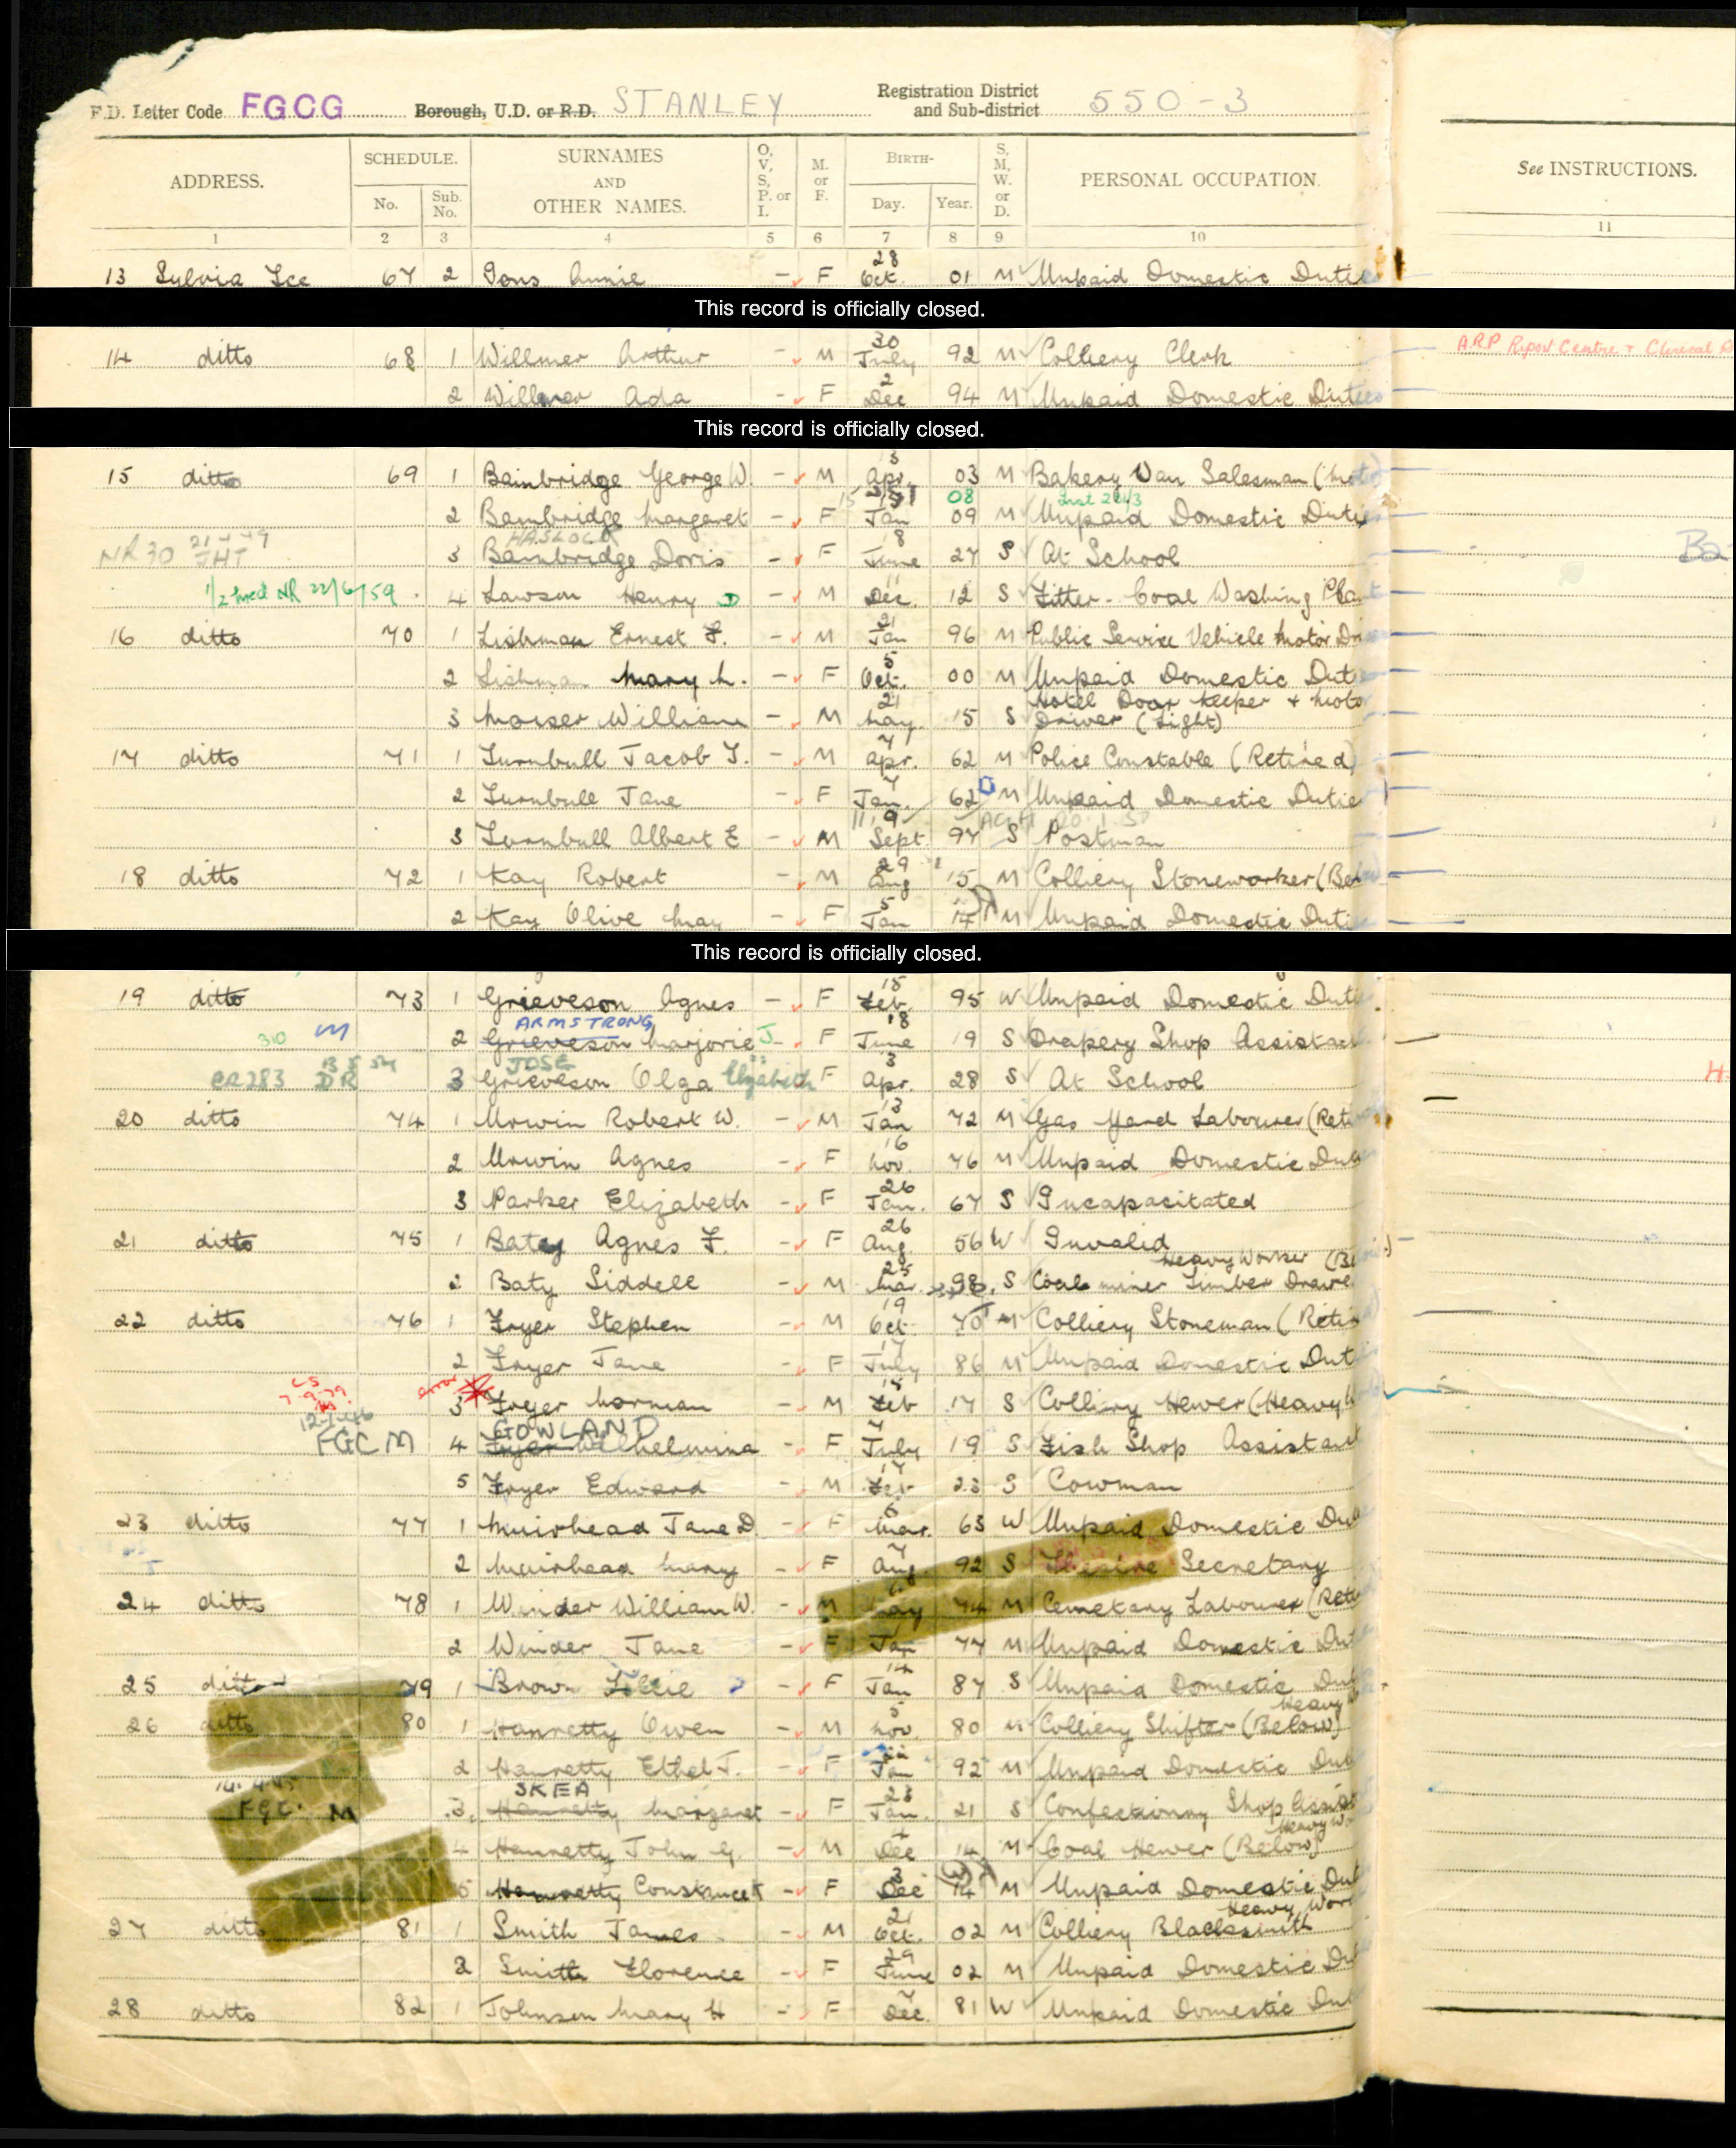 E.D. Letter Code FGCG Borough, U.D. or R.D. STANLEY Registration District and Sub-district 550-3
ADDRESS. SCHEDULE. No. Sub. No. SURNAMES AND OTHER NAMES. O, V, S, P. or I. M. or F. BIRTH- Day. Year. S, M, W. or D. PERSONAL OCCUPATION. See INSTRUCTIONS.
1 2 3 4 5 6 7 8 9 10 11
13 Sylvia Tce 67 2 Annie - F 28 Oct. 01 M Unpaid Domestic Duties
This record is officially closed.
14 ditto 68 1 Willmer Arthur - M 30 July 92 M Colliery Clerk ARP Report Centre + Clerical
2 Willmer Ada - F 2 Dec 94 M Unpaid Domestic Duties
This record is officially closed.
15 ditto 69 1 Bainbridge George W. - M 3 Apr. 03 M Bakery Van Salesman (
2 Bainbridge Margaret - F 15 Jan 08 09 M Unpaid Domestic Duties
NR30 JHT HASLOCK 3 Bainbridge Doris - F 8 June 27 S At School
NR 22/6/59 4 Lawson Henry D - M 11 Dec. 12 S Fitter - Coal Washing Plant
16 ditto 70 1 Lishman Ernest F. - M 21 Jan 96 M Public Service Vehicle Motor Dri
2 Lishman Mary h. - F 5 Oct. 00 M Unpaid Domestic Dut
3 William - M 21 May 15 S Hotel Door Keeper + Moto Driver (Light)
17 ditto 71 1 Turnbull Jacob T. - M 7 Apr. 62 M Police Constable (Retired)
2 Turnbull Jane - F 7 Jan. 62 D M Unpaid Domestic Dutie
3 Turnbull Albert E - M 9 Sept 97 S Postman
18 ditto 72 1 Kay Robert - M 29 Aug 15 M Colliery Stoneworker (Bel
2 Kay Olive May - F 5 Jan 17 M Unpaid Domestic Duti
This record is officially closed.
19 ditto 73 1 Grieveson Agnes - F 15 Feb. 95 W Unpaid Domestic Dut
310 M ARMSTRONG 2 Grieveson Marjorie J - F 18 June 19 S Drapery Shop Assistant
CR283 DR JOSE 3 Grieveson Olga Elizabeth F 3 Apr. 28 S At School
20 ditto 74 1 Urwin Robert W. - M 13 Jan 72 M Gas Yard Labourer (Reti
2 Urwin Agnes - F 16 Nov. 76 M Unpaid Domestic Dut
3 Parker Elizabeth - F 26 Jan. 67 S Incapacitated
21 ditto 75 1 Baty Agnes F. - F 26 Aug 56 W Invalid
2 Baty Siddell - M 25 Mar. 98 S Coal miner Timber Drawe Heavy Worker (Be
22 ditto 76 1 Fryer Stephen - M 19 Oct. 70 M Colliery Stoneman (Reti
2 Fryer Jane - F 17 July 86 M Unpaid Domestic Dut
error 3 Fryer Norman - M 15 Feb 17 S Colliery Hewer (Heavy
FGCM GOWLAND 4 Fryer Wilhelmina - F 7 July 19 S Fish Shop Assistant
5 Fryer Edward - M 17 Feb 23 S Cowman
23 ditto 77 1 Muirhead Jane D. - F 6 Mar. 63 W Unpaid Domestic Dut
2 Muirhead Mary - F 7 Aug. 92 S Theatre Secretary
24 ditto 78 1 Winder William W. - M May 74 M Cemetary Labourer (Reti
2 Winder Jane - F Jan 77 M Unpaid Domestic Dut
25 ditto 79 1 Brown - F 14 Jan 87 S Unpaid Domestic Dut
26 ditto 80 1 Hanretty Owen - M 5 Nov. 80 M Colliery Shifter (Below) Heavy
2 Hanretty Ethel J. - F 22 Jan 92 M Unpaid Domestic Dut
FGC. M SKEA 3. Hanretty Margaret - F 23 Jan. 21 S Confectionery Shop Assist
4 Hanretty John G. - M 4 Dec 14 M Coal Hewer (Below) Heavy Wo
5 Hanretty - F 3 Dec 14 M Unpaid Domestic Dut
27 ditto 81 1 Smith James - M 21 Oct. 02 M Colliery Blacksmith Heavy Work
2 Smith Florence - F 29 June 02 M Unpaid Domestic Du
28 ditto 82 1 Johnson Mary H - F 7 Dec. 81 W Unpaid Domestic Dut